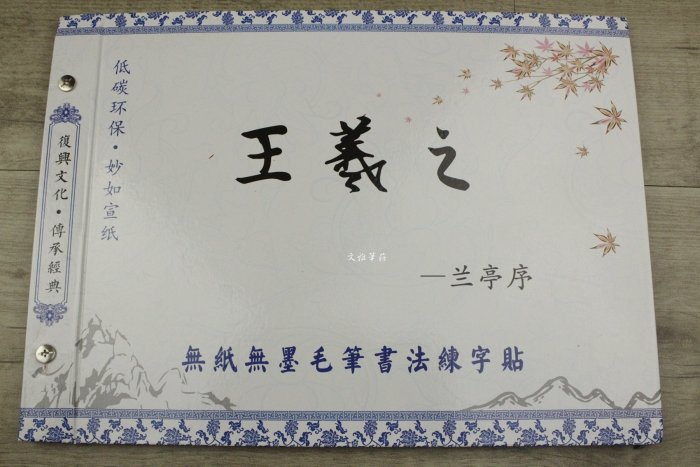 復興文化·傳承經典
低碳环保·妙如宣纸
王羲之
文雅筆莊
—兰亭序
無紙無墨毛筆書法練字貼